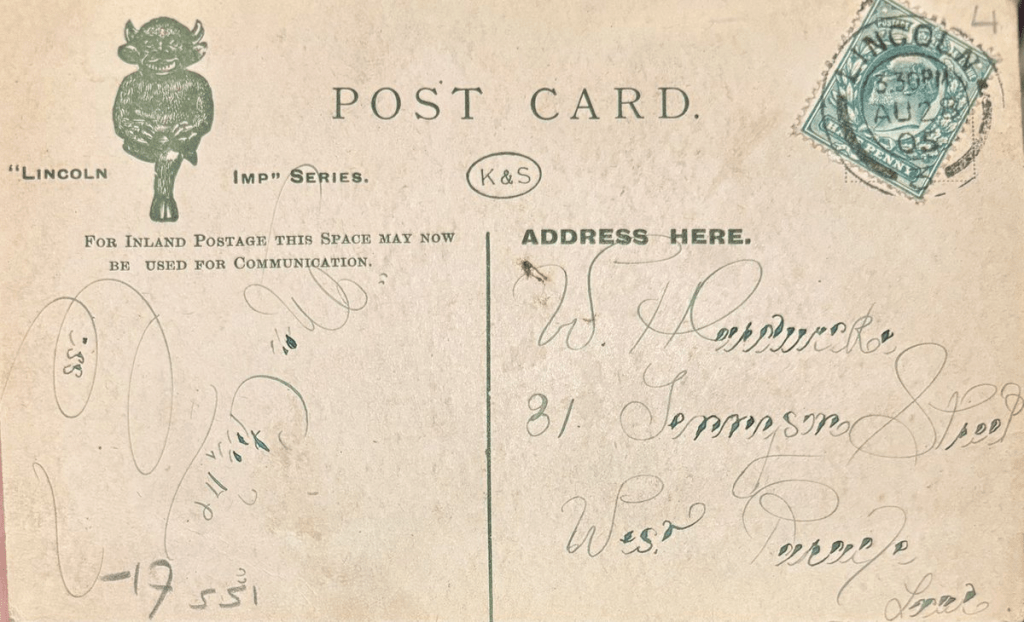 4
POST CARD.
LINCOLN
3.30PM
AU 28
05
HALF PENNY
"LINCOLN IMP" SERIES.
K & S
FOR INLAND POSTAGE THIS SPACE MAY NOW
BE USED FOR COMMUNICATION.
ADDRESS HERE.
W.
31. Tennyson Street
West Parade
-17
551